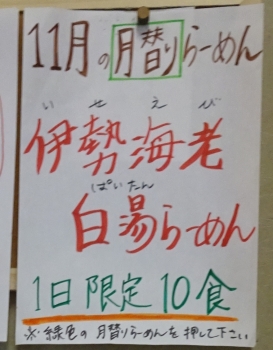 11月の月替りらーめん
いせえび
伊勢海老
ぱいたん
白湯らーめん
1日限定10食
※緑色の月替りらーめんを押して下さい